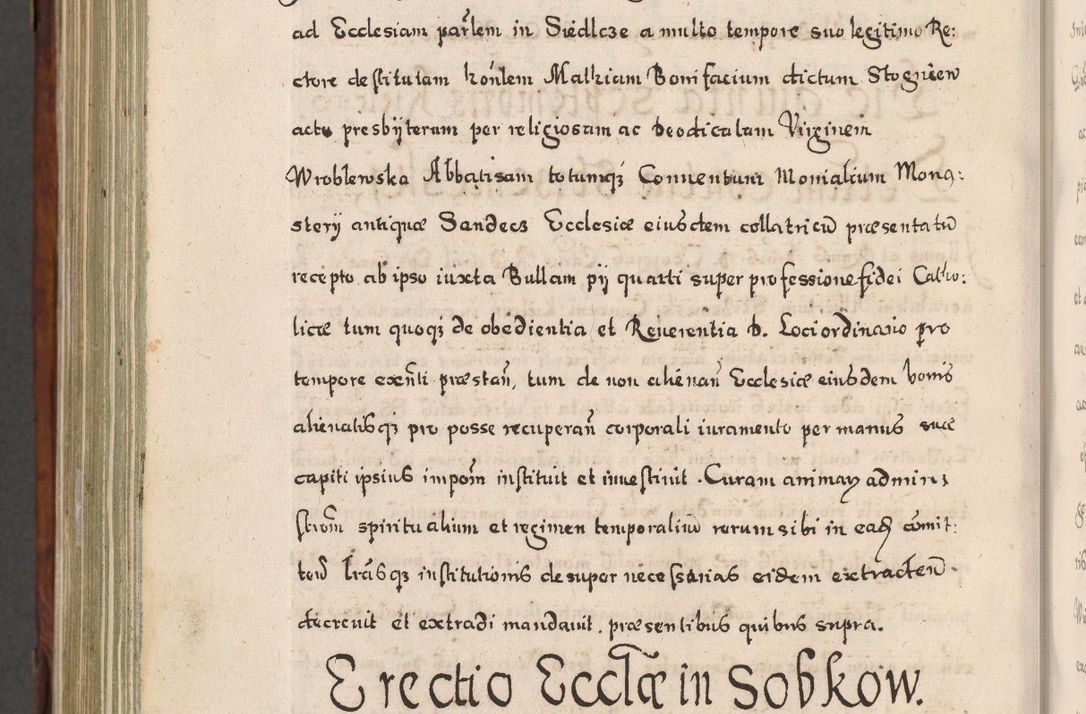 ad Ecclesiam parlem in Siedlcze a multo tempore suo legitimo Re:
ctore destitutam honlem Mathiam Bonifacium dictum Stogniew
actu presbyterum per religiosam ac Deodicatam Virginem
Wroblewska Abbatisam totumqȝ Conuentum Monialium Mona:
stery antiquæ Sandecz Ecclesiæ eiusdem collatricū præsentatū
recepto ab ipso iuxta Bullam pij quarti super professione fidei Catho:
licæ tum quoqȝ de obedientia et Reuerentia D. Loci ordinario pro
tempore exñti præstañ, tum de non alienañ Ecclesiæ eiusdem bonis
alienatisqȝ pro posse recuperañ corporali iuramento per manus suæ
capiti ipsius impoñ instituit et inuestiuit. Curam animaȝ admini
strõm spiritualium et regimen temporaliū rerum sibi in eað cõmit:
teñ lrãsqȝ institutionis desuper necessarias eidem extradeñ.
decreuit et extradi mandauit. præsentibus quibus supra.
Erectio Ecclæ in Sobkow.